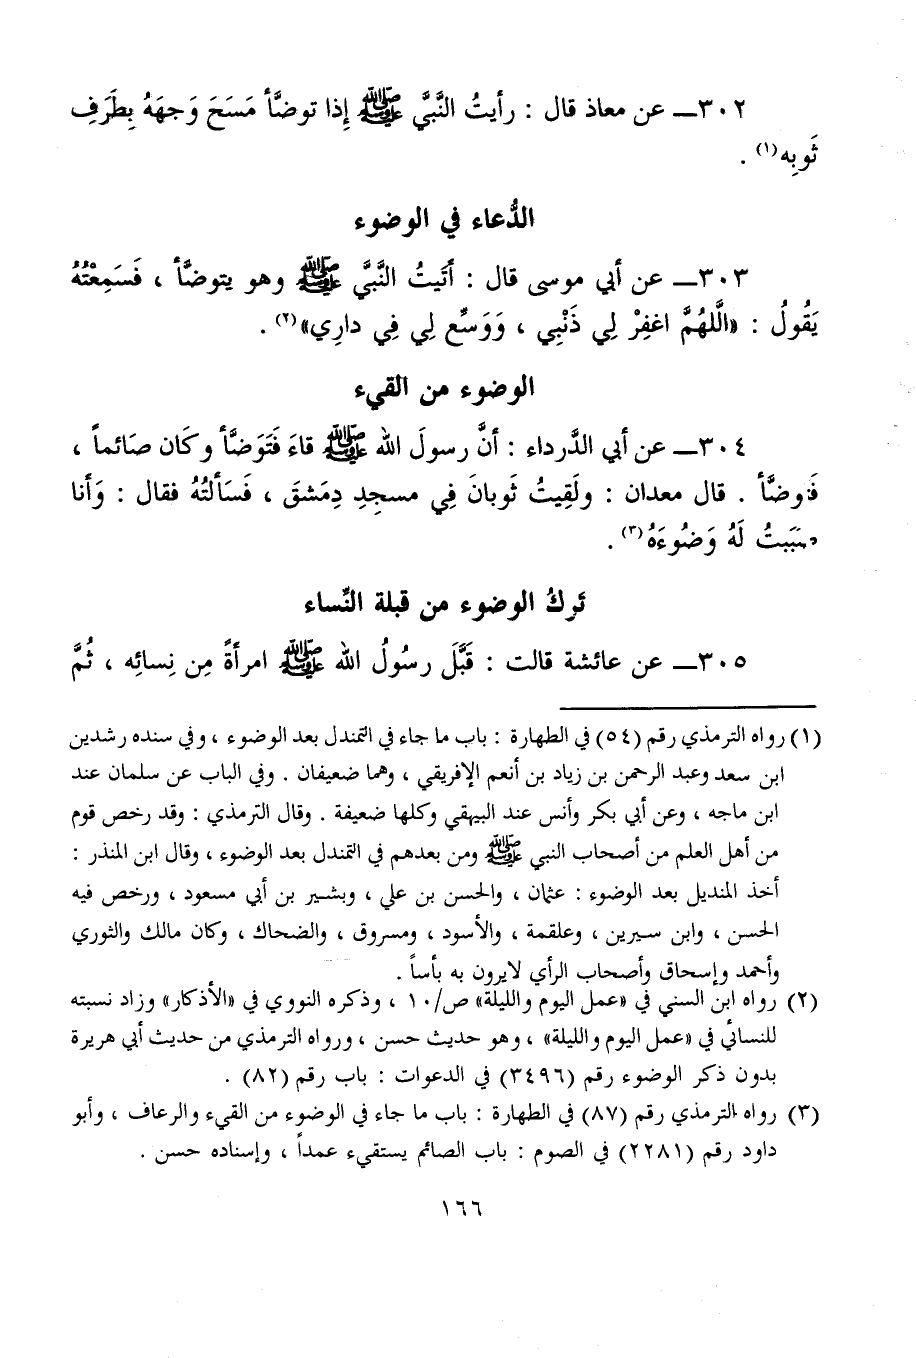 ٣٠٢ــ عن معاذ قال : رأيتُ النَّبيَّ ﷺ إِذا توضَّأ مَسَحَ وَجهَهُ بِطَرَفِ
ثَوبِه(١) .
الدُّعاء في الوضوء
٣٠٣ــ عن أبي موسى قال : أَتَيتُ النَّبيَّ ﷺ وهو يتوضَّأ ، فَسَمِعْتُهُ
يَقُولُ : «اللَّهُمَّ اغفِرْ لِي ذَنْبِي ، وَوَسِّع لِي فِي دارِي»(٢) .
الوضوء من القيء
٣٠٤ــ عن أبي الدَّرداء : أنَّ رسولَ الله ﷺ قاءَ فَتَوَضَّأ وكَان صَائماً ،
فتوضَّأ . قال معدان : ولَقِيتُ ثَوبانَ فِي مسجدِ دِمَشقَ ، فَسَألتُهُ فقال : وَأَنا
صَبَبتُ لَهُ وَضُوءَهُ(٣) .
تَركُ الوضوء من قبلة النِّساء
٣٠٥ــ عن عائشة قالت : قَبَّلَ رسُولُ الله ﷺ امرأَةً مِن نِسائِه ، ثُمَّ
(١) رواه الترمذي رقم (٥٤) في الطهارة : باب ما جاء في التمندل بعد الوضوء ، وفي سنده رشدين
ابن سعد وعبد الرحمن بن زياد بن أنعم الإفريقي ، وهما ضعيفان . وفي الباب عن سلمان عند
ابن ماجه ، وعن أبي بكر وأنس عند البيهقي وكلها ضعيفة . وقال الترمذي : وقد رخص قوم
من أهل العلم من أصحاب النبي ﷺ ومن بعدهم في التمندل بعد الوضوء ، وقال ابن المنذر :
أخذ المنديل بعد الوضوء : عثمان ، والحسن بن علي ، وبشير بن أبي مسعود ، ورخص فيه
الحسن ، وابن سيرين ، وعلقمة ، والأسود ، ومسروق ، والضحاك ، وكان مالك والثوري
وأحمد وإسحاق وأصحاب الرأي لايرون به بأساً .
(٢) رواه ابن السني في «عمل اليوم والليلة» ص/١٠ ، وذكره النووي في «الأذكار» وزاد نسبته
للنسائي في «عمل اليوم والليلة» ، وهو حديث حسن ، ورواه الترمذي من حديث أبي هريرة
بدون ذكر الوضوء رقم (٣٤٩٦) في الدعوات : باب رقم (٨٢) .
(٣) رواه الترمذي رقم (٨٧) في الطهارة : باب ما جاء في الوضوء من القيء والرعاف ، وأبو
داود رقم (٢٢٨١) في الصوم : باب الصائم يستقيء عمداً ، وإسناده حسن .
١٦٦